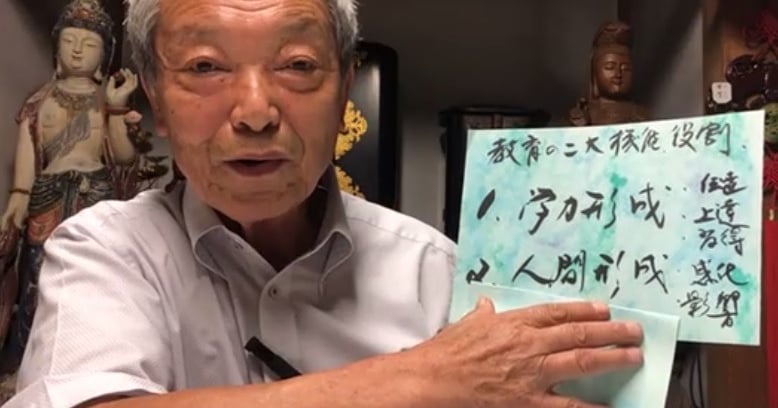 教育の二大機能、役割、
1. 学力形成
・伝達
・上達
習得
2 人間形成
・感化
影響